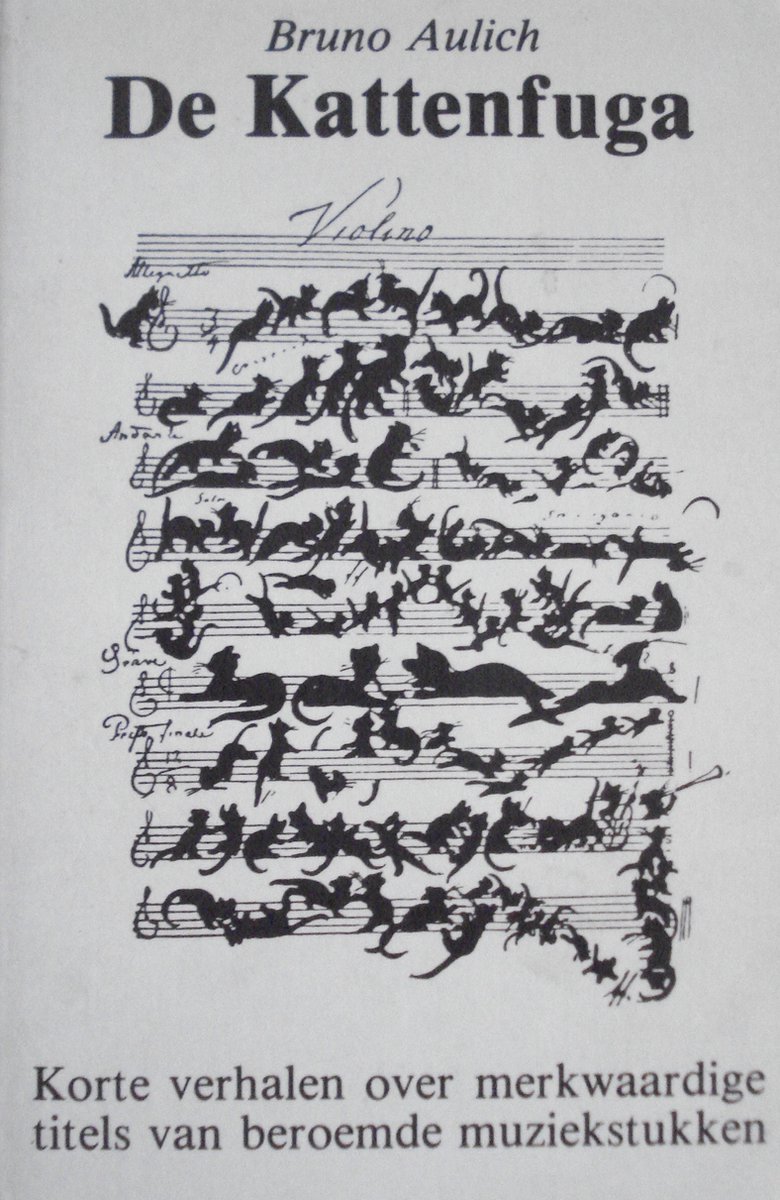 Bruno Aulich
De Kattenfuga
Violino
Allegretto
3
4
Andante
Solo
Grave
Presto finale
12
8
H.
Korte verhalen over merkwaardige
titels van beroemde muziekstukken